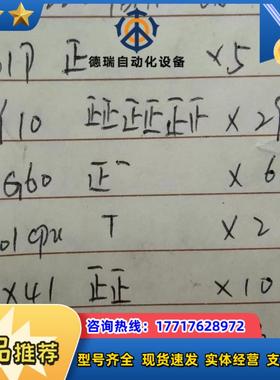 德瑞自动化设备
01P 正 ×5
Y10 正正正正正正 × 29
G60 正一 × 6
01CPU T × 2
X41 正正 × 10
品推荐
咨询热线：17717628972
型号齐全 现货速发 实体经营 支